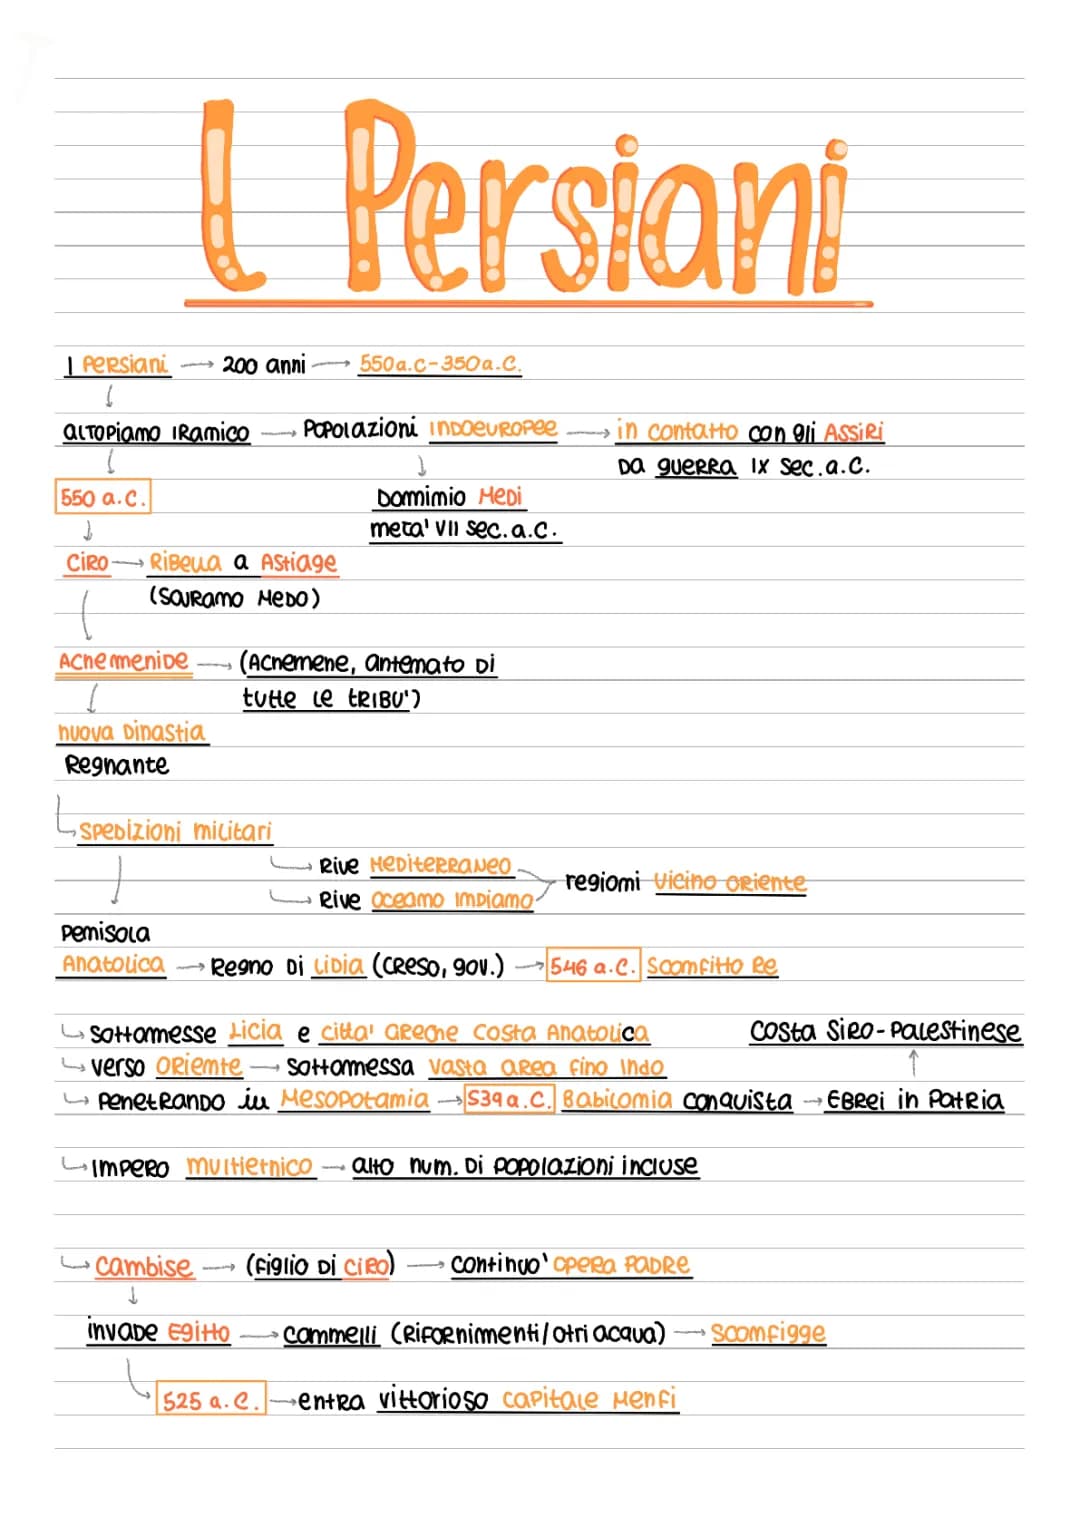 I Persiani
I Persiani → 200 anni → 550 a.C-350 a.C.
altopiano iranico → Popolazioni indoeuropee → in contatto con gli Assiri
da guerra IX sec. a.C.
550 a.C.
Dominio Medi
meta' VII sec. a.C.
Ciro → Ribella a Astiage
(sovrano Medo)
Achemenide → (Achemene, antenato di
tutte le tribu')
nuova dinastia
Regnante
Spedizioni militari
Rive Mediterraneo
regioni Vicino Oriente
Rive Oceano Indiano
Penisola
Anatolica → Regno di Lidia (Creso, gov.) → 546 a.C. Sconfitto Re
Sottomesse Licia e citta' greche Costa Anatolica
Costa Siro-Palestinese
verso Oriente → Sottomessa vasta area fino Indo
Penetrando in Mesopotamia → 539 a.C. Babilonia conquista → Ebrei in Patria
Impero multietnico → alto num. di popolazioni incluse
Cambise → (figlio di Ciro) → continuo' opera padre
invade Egitto → cammelli (rifornimenti/otri acqua) → Sconfigge
525 a.C. → entra vittorioso capitale Menfi